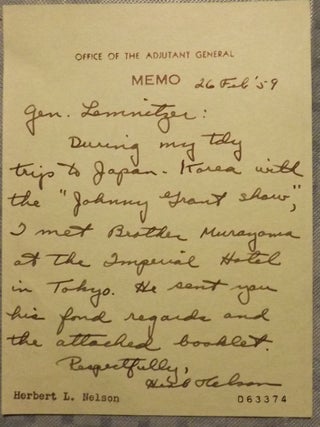 OFFICE OF THE ADJUTANT GENERAL
MEMO 26 Feb '59
Gen. Lemnitzer:
During my tdy
trip to Japan-Korea with
the "Johnny Grant show",
I met Brother Murayama
at the Imperial Hotel
in Tokyo. He sent you
his fond regards and
the attached booklet.
Respectfully,
Herb Nelson
Herbert L. Nelson 063374